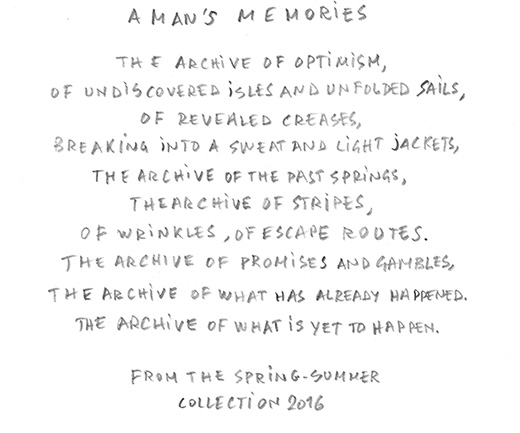 A MAN'S MEMORIES
THE ARCHIVE OF OPTIMISM,
OF UNDISCOVERED ISLES AND UNFOLDED SAILS,
OF REVEALED CREASES,
BREAKING INTO A SWEAT AND LIGHT JACKETS,
THE ARCHIVE OF THE PAST SPRINGS,
THE ARCHIVE OF STRIPES,
OF WRINKLES, OF ESCAPE ROUTES.
THE ARCHIVE OF PROMISES AND GAMBLES,
THE ARCHIVE OF WHAT HAS ALREADY HAPPENED.
THE ARCHIVE OF WHAT IS YET TO HAPPEN.
FROM THE SPRING-SUMMER
COLLECTION 2016